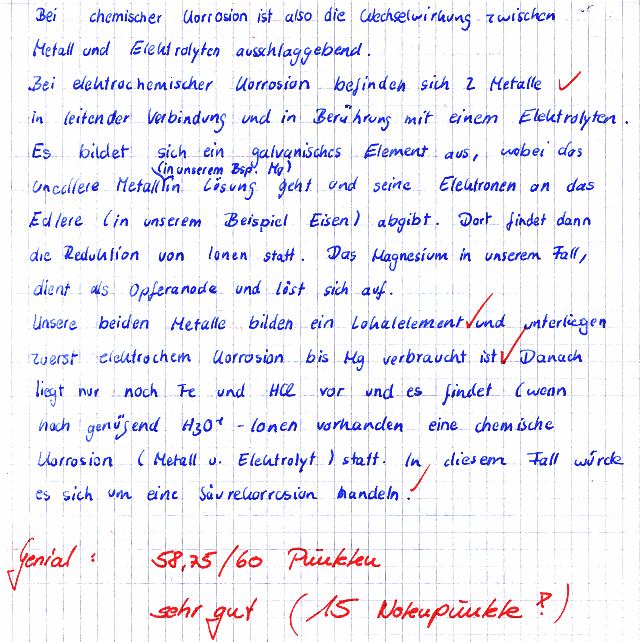 Bei chemischer Korrosion ist also die Wechselwirkung zwischen
Metall und Elektrolyten ausschlaggebend.
Bei elektrochemischer Korrosion befinden sich 2 Metalle
in leitender Verbindung und in Berührung mit einem Elektrolyten.
Es bildet sich ein galvanisches Element aus, wobei das
(in unserem Bsp. Mg)
unedlere Metall in Lösung geht und seine Elektronen an das
Edlere (in unserem Beispiel Eisen) abgibt. Dort findet dann
die Reduktion von Ionen statt. Das Magnesium in unserem Fall,
dient als Opferanode und löst sich auf.
Unsere beiden Metalle bilden ein Lokalelement und unterliegen
zuerst elektrochem Korrosion bis Mg verbraucht ist. Danach
liegt nur noch Fe und HCl vor und es findet (wenn
noch genügend H3O+ - Ionen vorhanden eine chemische
Korrosion (Metall u. Elektrolyt) statt. In diesem Fall würde
es sich um eine Säurekorrosion handeln.
Genial: 58,75/60 Punkten
sehr gut (15 Notenpunkte!)